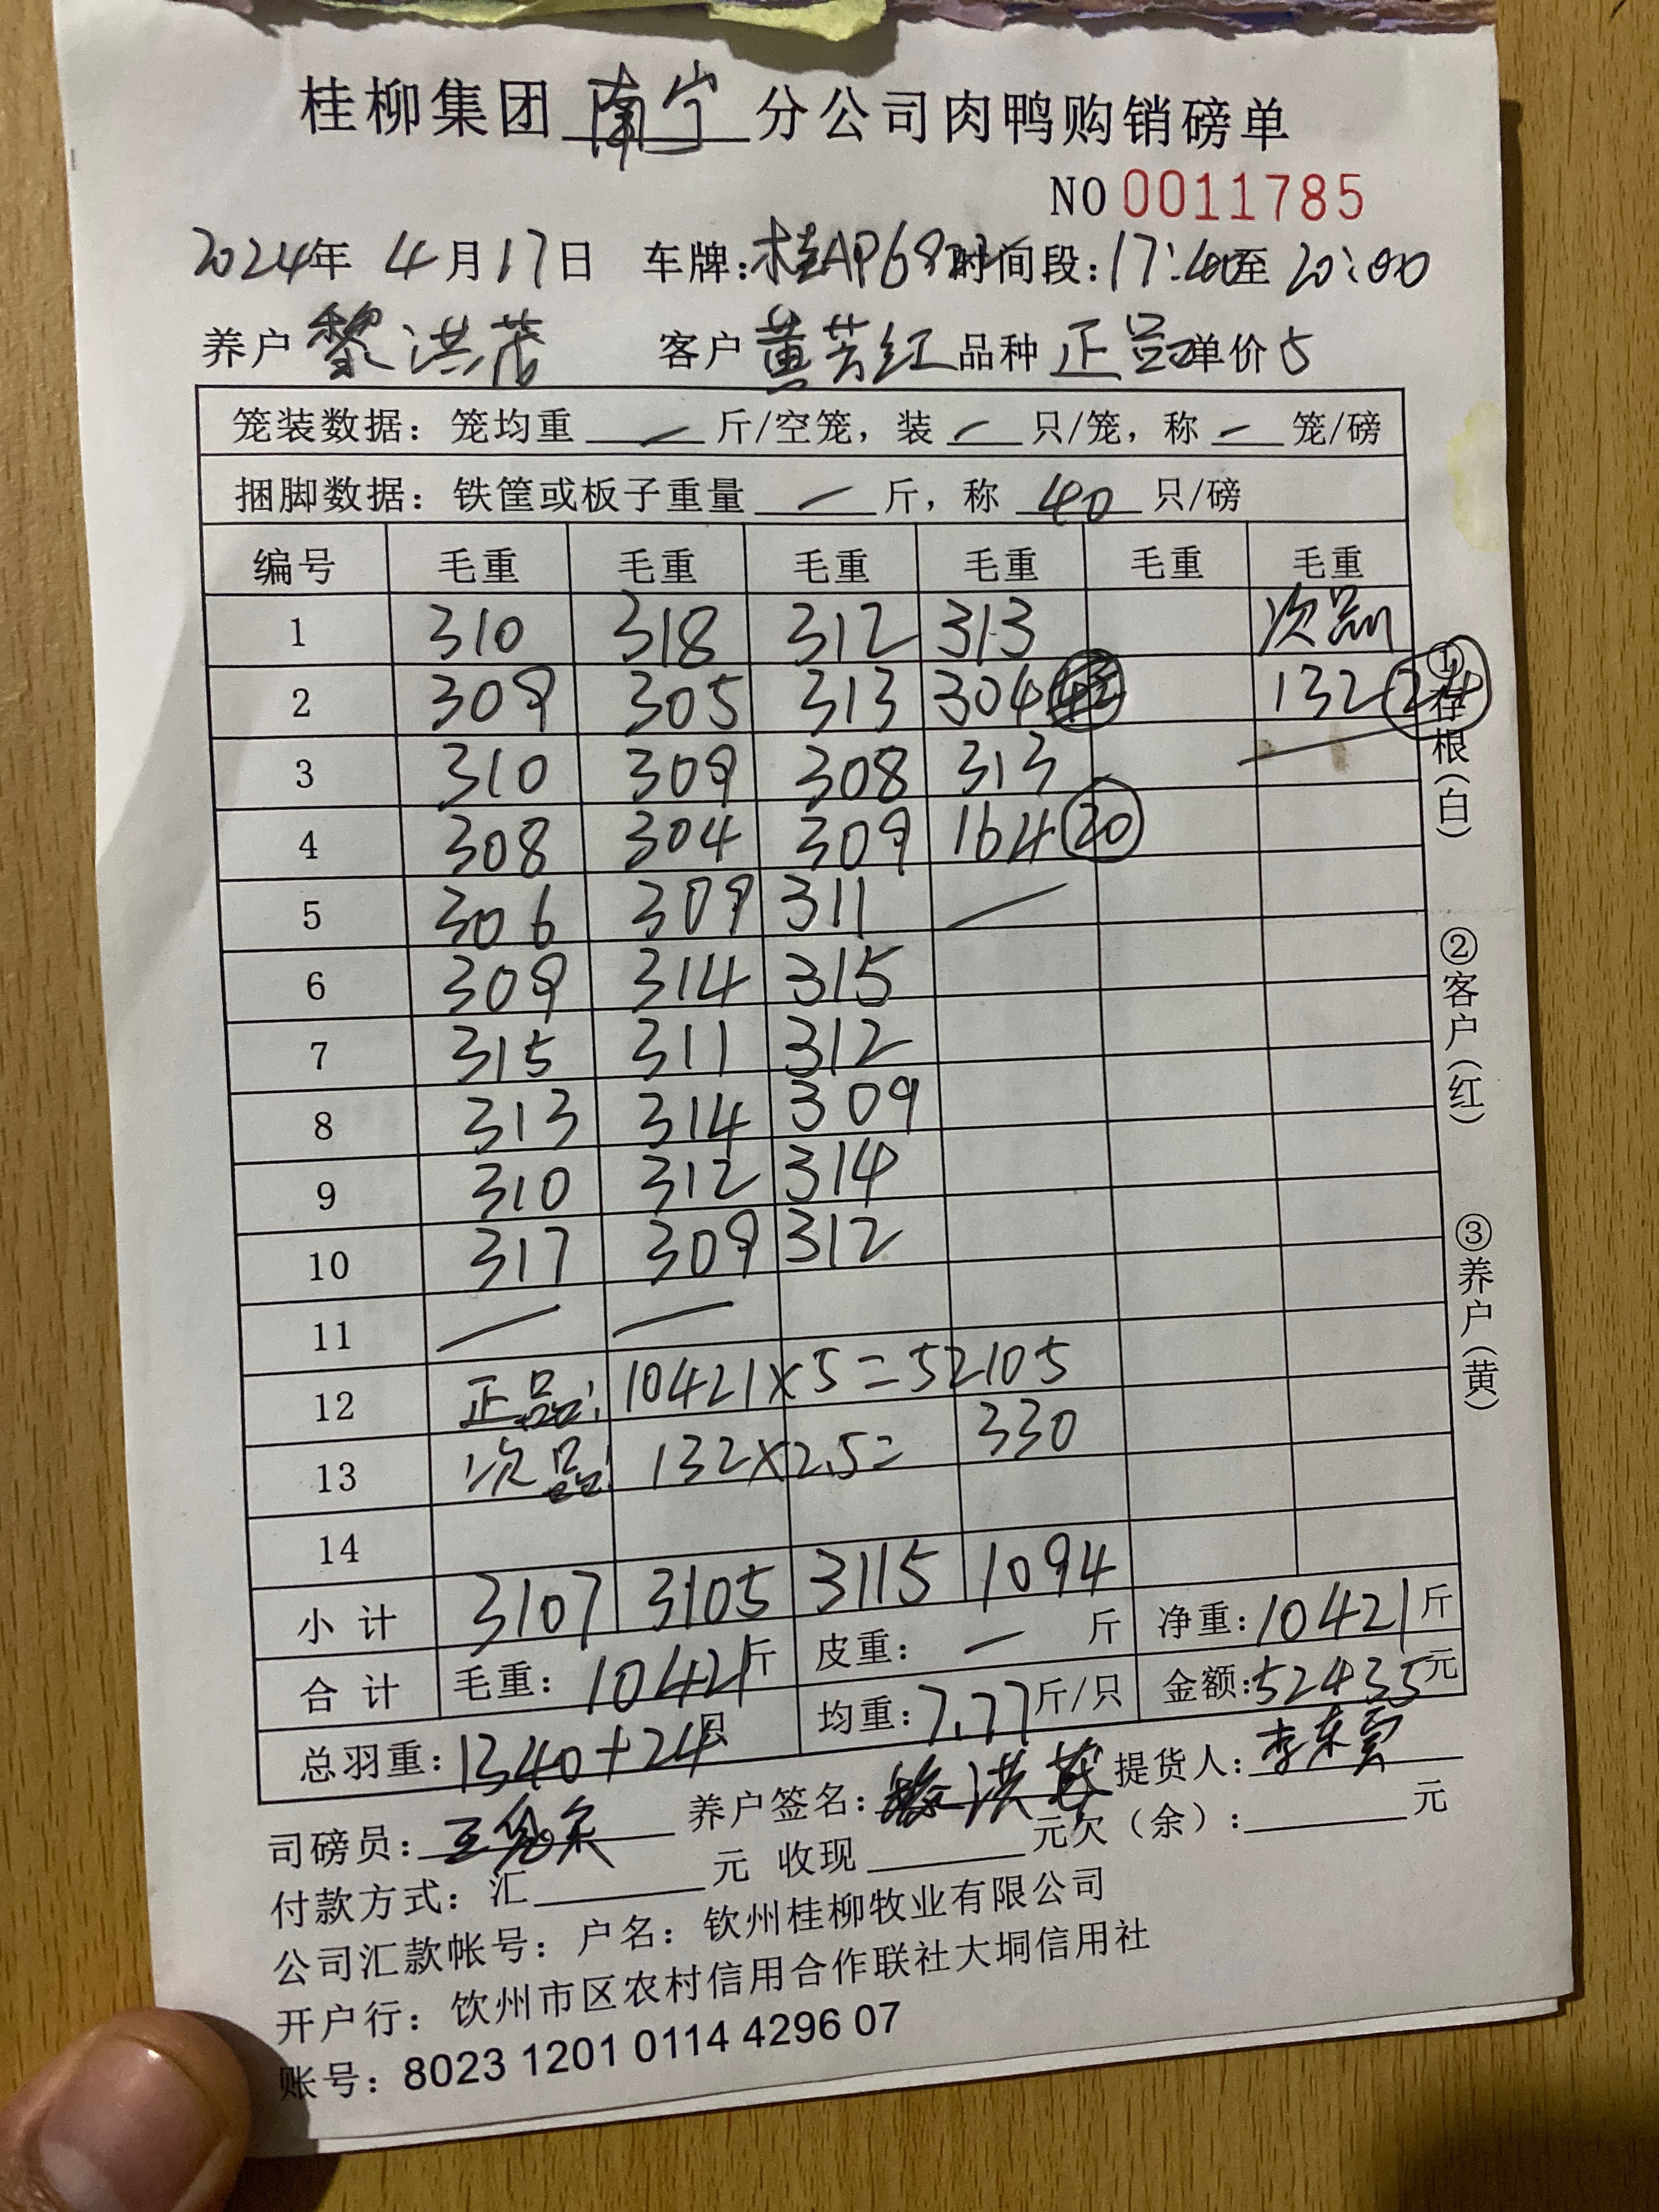 桂柳集团南宁分公司肉鸭购销磅单
NO 0011785
2024年 4月17日 车牌:桂AP68 时间段:17:40至20:00
养户 黎洪茂 客户 黄芳红 品种 正品 单价5
笼装数据: 笼均重 — 斤/空笼, 装 — 只/笼, 称 — 笼/磅
捆脚数据: 铁筐或板子重量 — 斤, 称 40 只/磅
编号 毛重 毛重 毛重 毛重 毛重 毛重
1 310 318 312 313 次品
2 309 305 313 304 132 24
3 310 309 308 313 —
4 308 304 309 164 20
5 306 309 311 —
6 309 314 315
7 315 311 312
8 313 314 309
9 310 312 314
10 317 309 312
11 — —
12 正品: 10421×5=52105
13 次品: 132×2.5= 330
14
小计 3107 3105 3115 1094
合计 毛重: 10421斤 皮重: — 斤 净重: 10421斤
总羽重: 1340+24只 均重: 7.77斤/只 金额: 52435元
司磅员: 养户签名: 黎洪茂 提货人: 李东
付款方式: 汇 元 收现 元欠（余）: 元
公司汇款帐号: 户名: 钦州桂柳牧业有限公司
开户行: 钦州市区农村信用合作联社大垌信用社
账号: 8023 1201 0114 4296 07
①存根(白)
②客户(红)
③养户(黄)